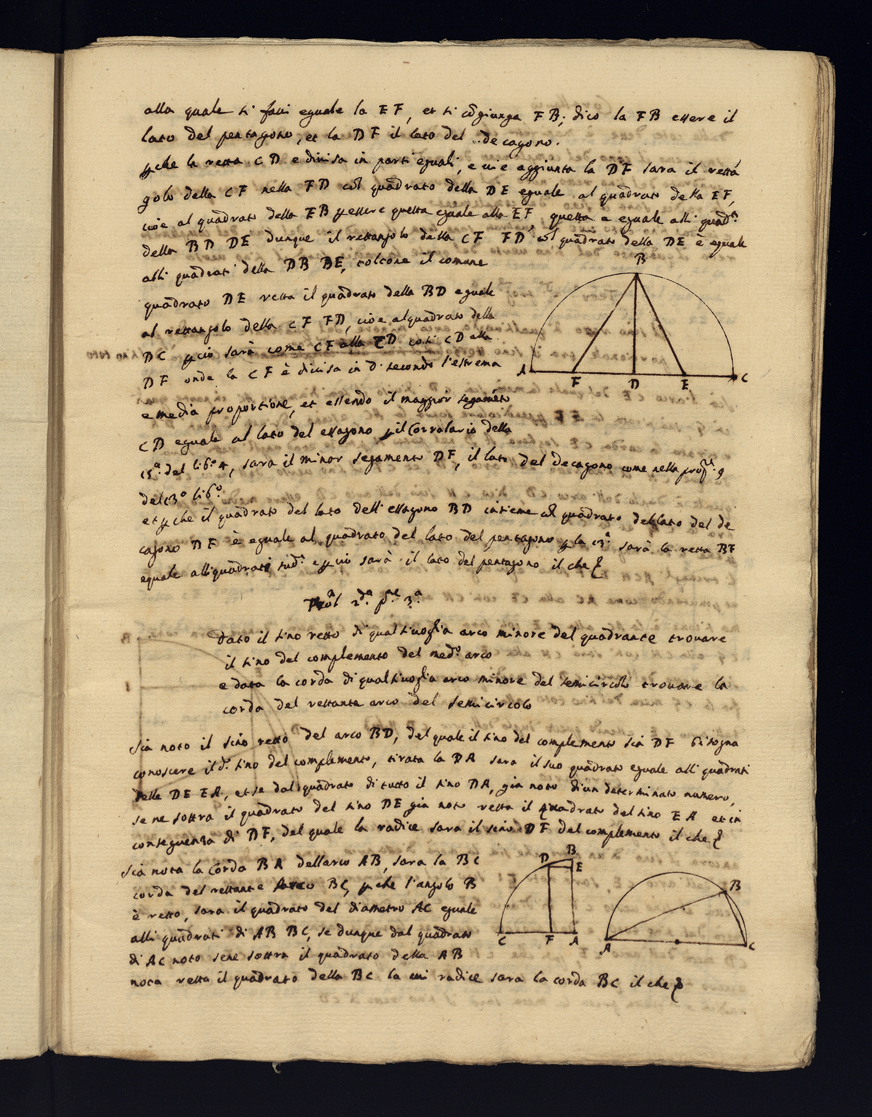 alla quale si facci eguale la EF, et si cõgiunga FB; dico la FB essere il
lato del pentagono, et la DF il lato del decagono.
p che la retta CD e divisa in parti eguali, e vi e aggiunta la DF sara il rettã
golo della CF nella FD col quadrato della DE eguale al quadrato della EF,
cioe al quadrato della FB p essere questa eguale alla EF questa e eguale alli quad.ti
della BD DE dunque il rettangolo della CF FD col quadrato della DE è eguale
alli quadrati della DB BE, tolcone il comune
quadrato DE resta il quadrato della BD eguale
al rettangolo della CF FD, cioe al quadrato della
DC p cio sarà come CF alla CD cosi CD alla
DF onde la CF è divisa in D secondo l'estrema
e media proportione, et essendo il maggior segamẽto
CD eguale al lato del essagono p il Corrolario della
15.a del lib.o 4, sara il minor segamento DF, il lato del decagono come nella prop. 9
del 13.o lib.o
et p che il quadrato del lato dell'essagono BD insieme col quadrato del lato del de
cagono DF è eguale al quadrato del lato del pentagono p la sarà la retta BF
eguale alli quadrati sud.i e p cio sarà il lato del pentagono il che
2.da 3.a
Dato il sino retto di qualsivoglia arco minore del quadrante trovare
il sino del complemento del med.o arco
e data la corda di qualsivoglia arco minore del semicircolo trovare la
corda del restante arco del semicircolo
Sia noto il sino retto del arco BD, del quale il sino del complemento sia DF bisogna
conoscere il d.o sino del complemento, tirata la DA sara il suo quadrato eguale alli quadrati
delle DE EA, et se dal quadrato di tutto il sino DA, gia noto di un determinato numero,
se ne sottra il quadrato del sino DE gia noto resta il quadrato del sino EA et in
conseguenza di DF, del quale la radice sara il sino DF del complemento il che
Sia nota la Corda BA dell'arco AB, sara la BC
corda del restante Arco BC, p che l'angolo B
è retto, sara il quadrato del diametro AC eguale
alli quadrati di AB BC, se dunque dal quadrato
di AC noto sene sottra il quadrato della AB
nota resta il quadrato della BC la cui radice sara la corda BC il che
B
A F D E C
D B E
C F A
B
A C